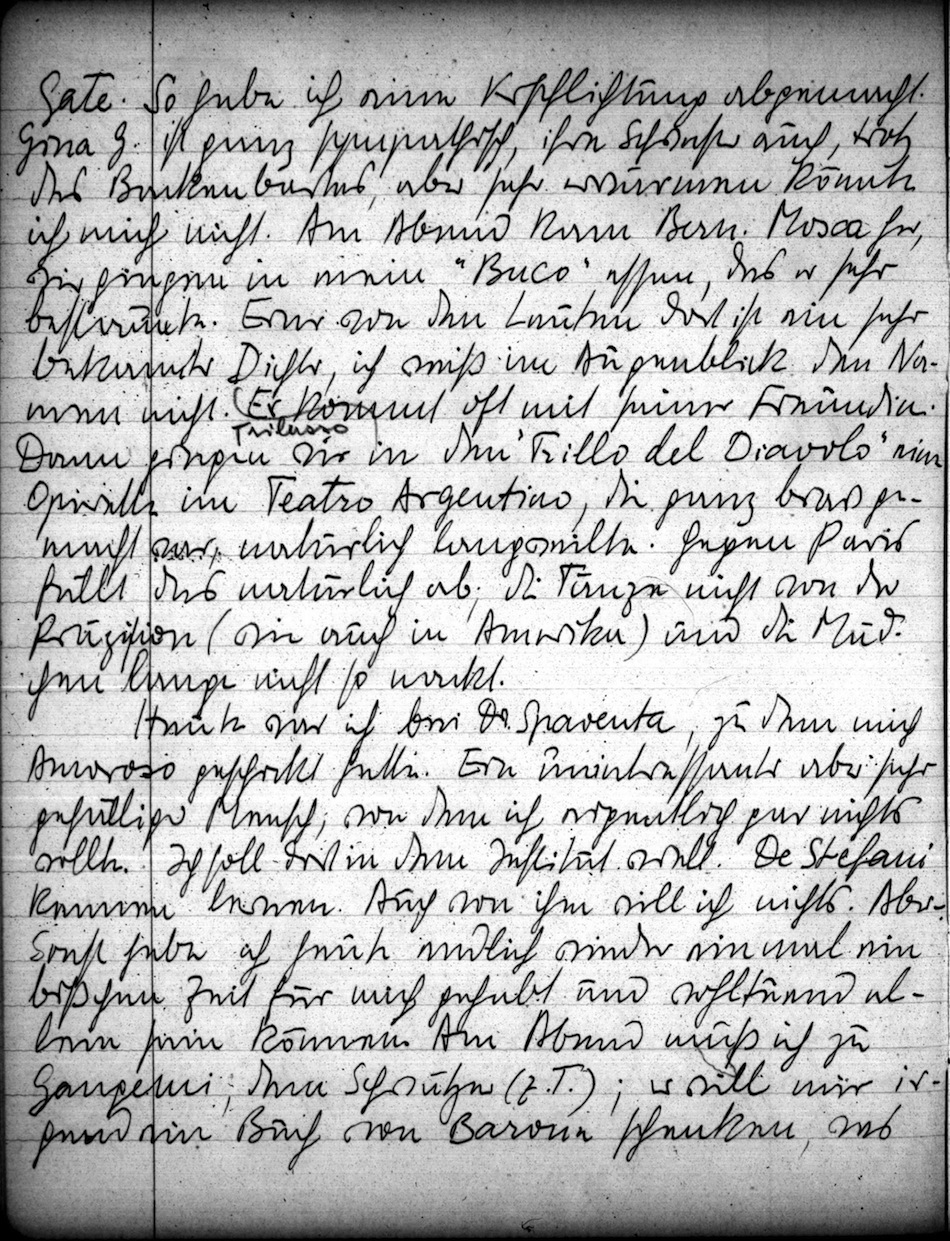 Gate. So habe ich eine Verpflichtung abgemacht.
Gina G. ist ganz sympathisch, ihre Schwester auch, trotz
des Backenbartes, aber sehr erwärmen könnte
ich mich nicht. Am Abend kam Bern. Mosca her,
wir gingen in mein "Buco" essen, das er sehr
bestaunte. Einer von den Leuten dort ist ein sehr
bekannter Dichter, ich weiß im Augenblick den Na-
men nicht. (Er kommt oft mit seiner Freundin.
Trilusso)
Dann gingen wir in den "Trillo del Diavolo" eine
Operette im Teatro Argentino, die ganz brav ge-
macht war, natürlich langweilte. Gegen Paris
fällt das natürlich ab; die Tänze nicht von der
Präzision (wie auch in Amerika) und die Mäd-
chen lange nicht so nackt.
Heute war ich bei Dr. Spaventa, zu dem mich
Amoroso geschickt hatte. Ein uninteressanter aber sehr
gefälliger Mensch, von dem ich eigentlich gar nichts
wollte. Ich soll dort in dem Institut evtl. De Stefani
kennen lernen. Auch von ihm will ich nichts. Aber
sonst habe ich heute endlich wieder einmal ein
bißchen Zeit für mich gehabt und wohltuend al-
lein sein können. Am Abend muß ich zu
Gangemi, dem Schwätzer (z.T.); er will mir ir-
gend ein Buch von Barone schenken, was